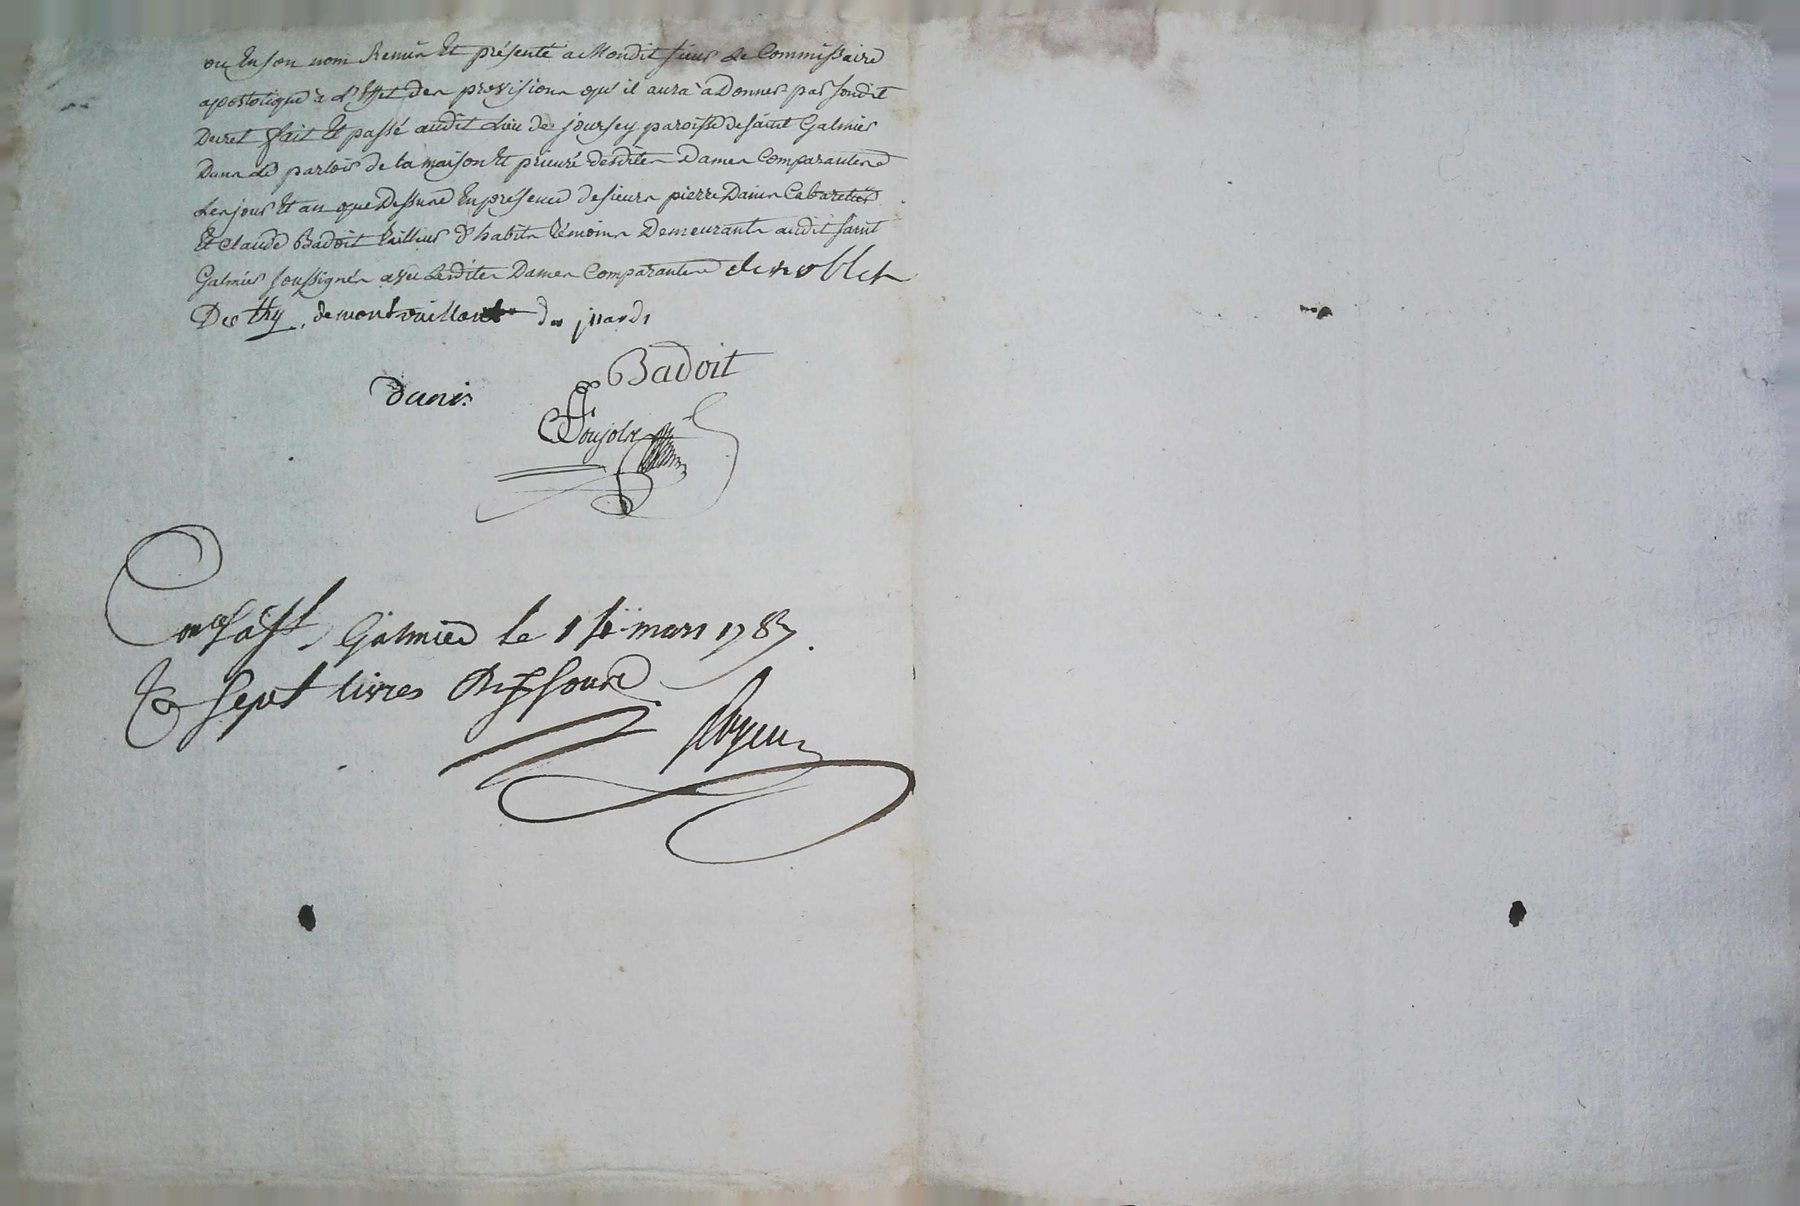 ou En son nom Remis Et présenté a Mondit sieur Le Commissaire
apostolique à L'Effet des provisions qu'il aura à Donner par Soudit
Decret fait Et passé audit Lieu de joursey paroisse de saint Galmier
Dans Le parloir de la maison Et prieuré desdites Dames Comparantes
Les jour Et an que Dessus En présence de sieurs pierre Danis Cabaretier
Et Claude Badoit tailleur d'habits témoins Demeurants audit saint
Galmier soussignés avec Lesdites Dames Comparantes denoblet
De thy, de montrouillant des jjards
Badoit
Danis
Poujolx
Con. à st Galmier le 14 mars 1787.
sept livres sous